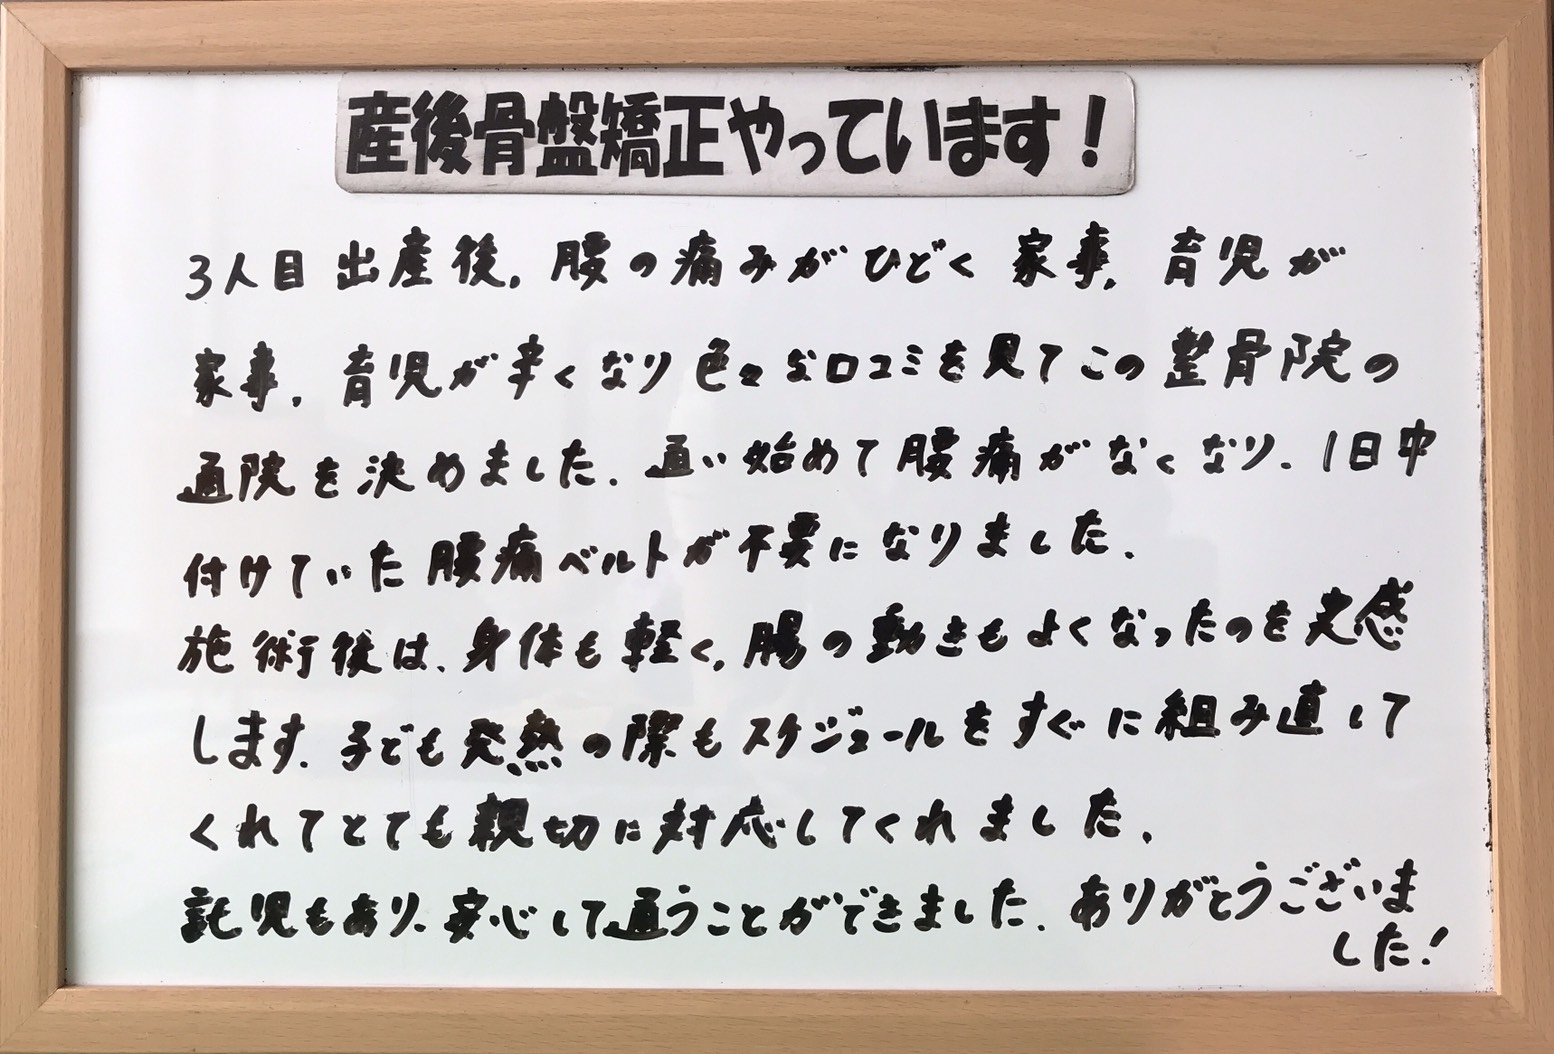 産後骨盤矯正やっています！
3人目出産後、腰の痛みがひどく家事、育児が
家事、育児が辛くなり色々な口コミを見てこの整骨院の
通院を決めました。通い始めて腰痛がなくなり、1日中
付けていた腰痛ベルトが不要になりました。
施術後は、身体も軽く、腸の動きもよくなったのを実感
します。子ども発熱の際もスケジュールをすぐに組み直して
くれてとても親切に対応してくれました。
託児もあり、安心して通うことができました、ありがとうございま
した！